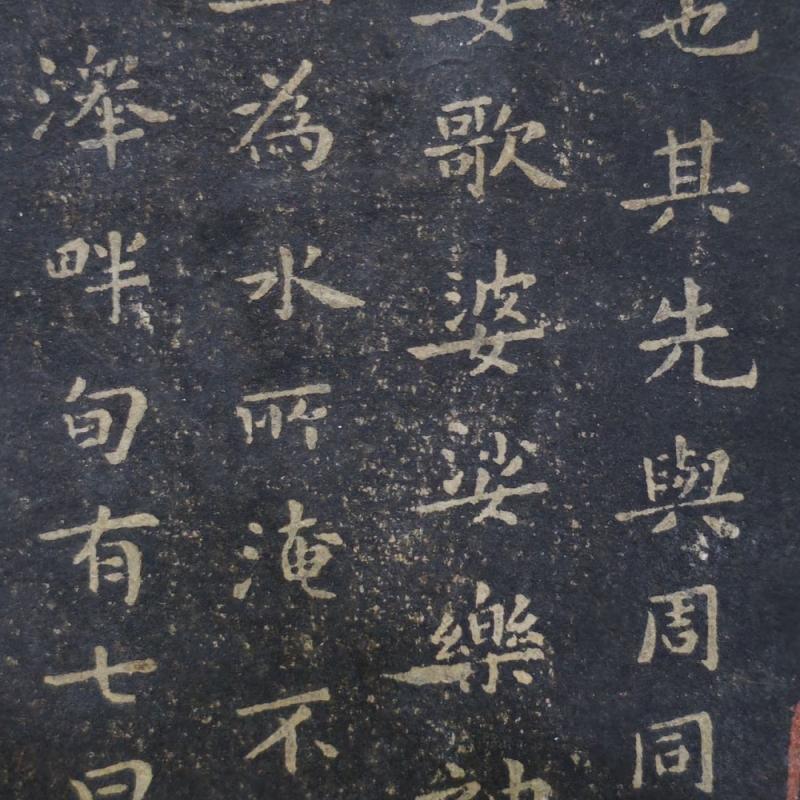 也其先與周同
安歌婆娑樂神
為水所淹不
澤畔旬有七日